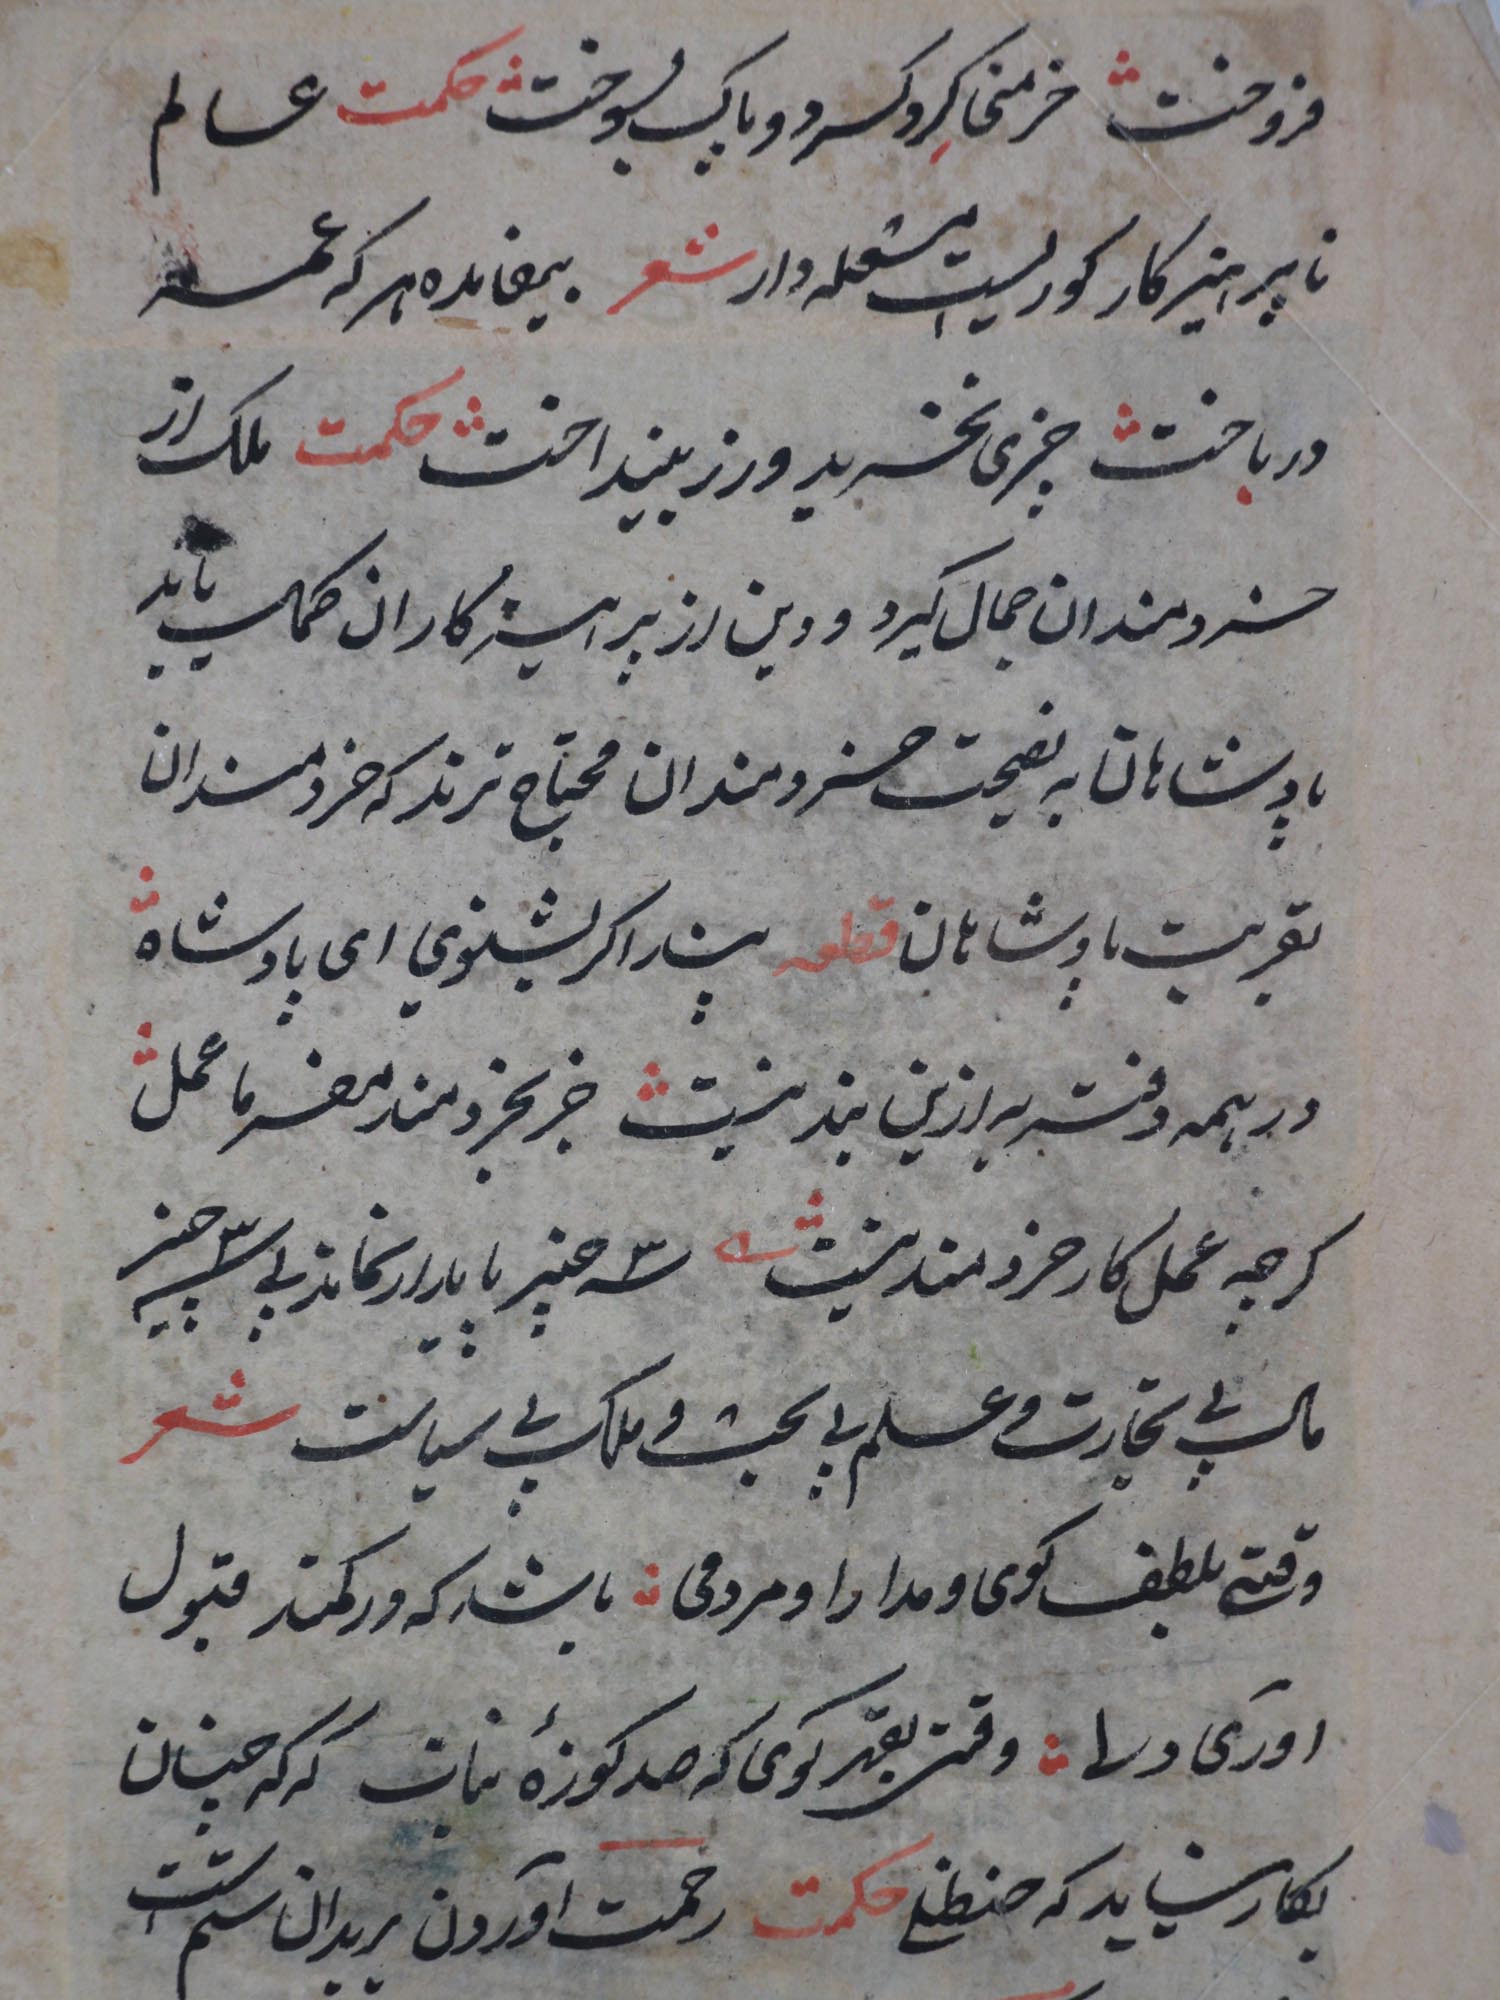 فروخت خرمنی کرد کرد و پاک بسوخت حکمت عالم
ناپرهیزکار کوریست مشعله دار شعر بیفایده هر که عمر
درباخت چیزی نخرید و زر بینداخت حکمت ملک از
خردمندان جمال گیرد و دین از پرهیزکاران کمال یابد
پادشاهان به نصیحت خردمندان محتاج ترند که خردمندان
بقربت پادشاهان قطعه پند را اگر بشنوی ای پادشاه
در همه دفتر به ازین پند نیست جز بخردمند مفرما عمل
گرچه عمل کار خردمند نیست سه چیز پایدار نماند بی سه چیز
مال بی تجارت و علم بی بحث و ملک بی سیاست شعر
وقتی بلطف گوی و مدارا و مردمی باشد که در کمند قبول
آوری دلی وقتی بقهر گوی که صد کوزهٔ نبات که که چنان
بکار نیاید که حنظلی حکمت رحمت آوردن بر بدان ستم است